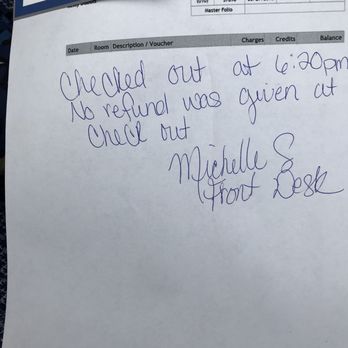 Master Folio
Date Room Description / Voucher Charges Credits Balance
Checked out at 6:20pm
No refund was given at
Check out
Michelle S
Front Desk